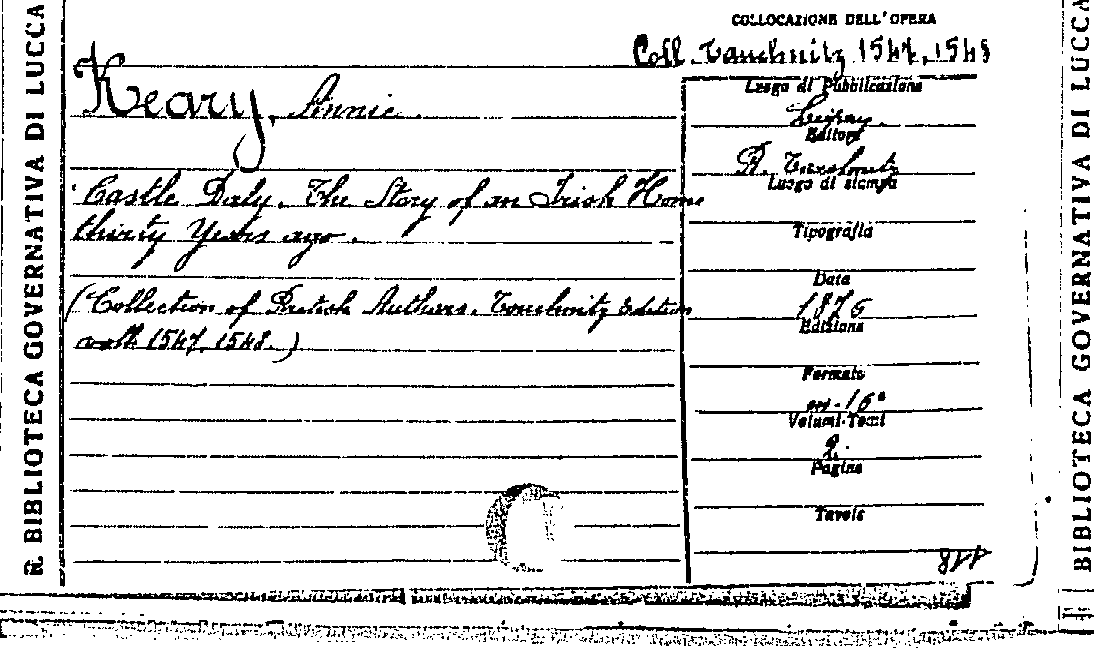 R. BIBLIOTECA GOVERNATIVA DI LUCCA
COLLOCAZIONE DELL'OPERA
Coll. Tauchnitz 1547, 1548
Keary, Annie.
Castle Daly. The Story of an Irish Home
thirty Years ago.
(Collection of British Authors. Tauchnitz Edition
voll. 1547. 1548.)
Luogo di Pubblicazione
Editore
B. Tauchnitz
Luogo di stampa
Tipografia
Data
1876
Edizione
Formato
in-16°
Volumi-Tomi
2.
Pagine
Tavole
BIBLIOTECA GOVERNATIVA DI LUCCA